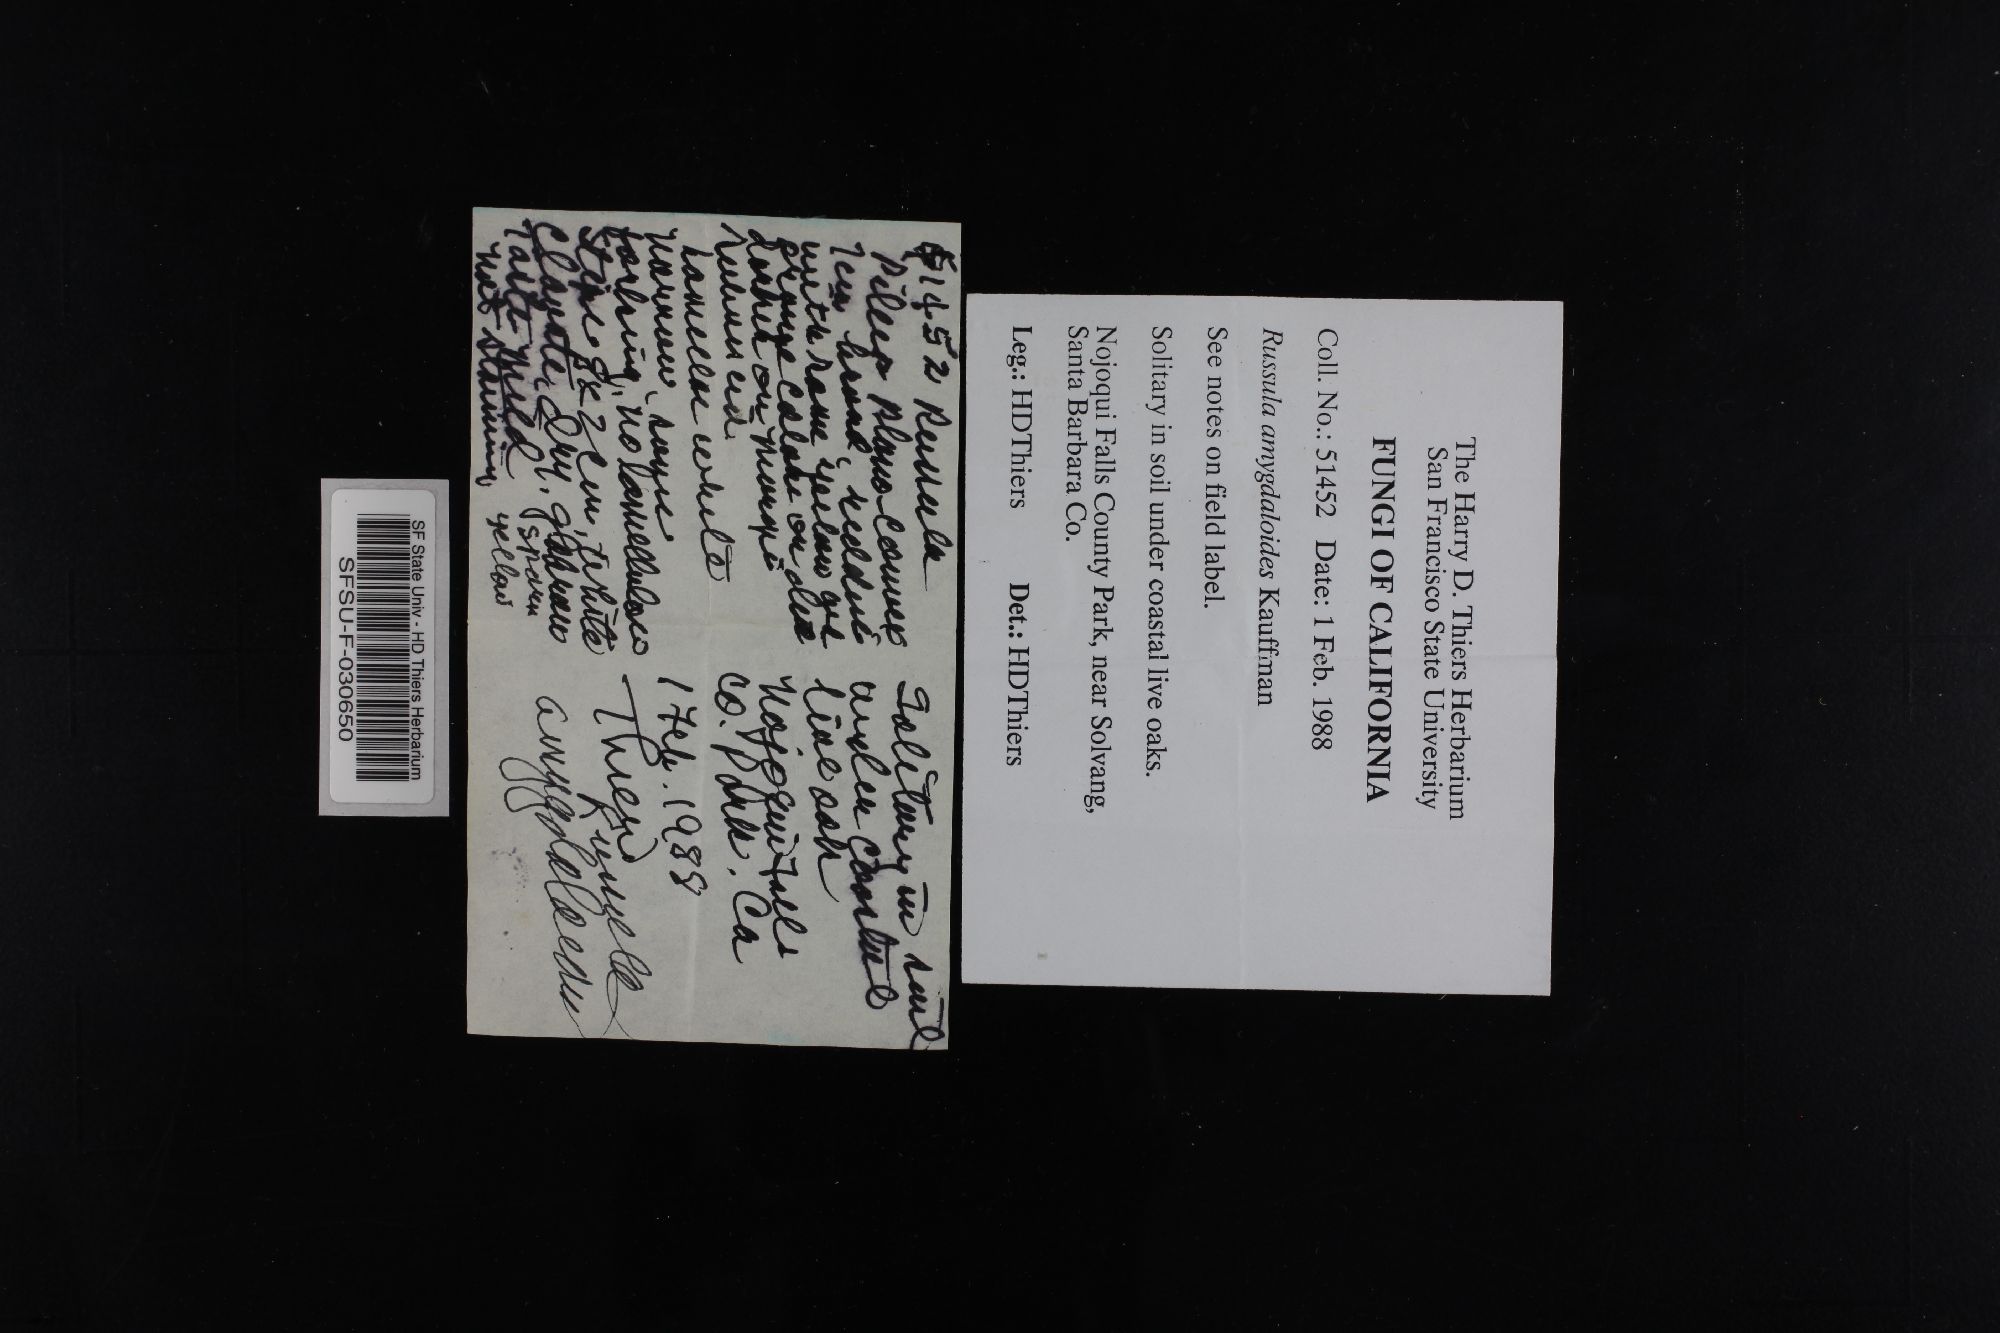 The Harry D. Thiers Herbarium
San Francisco State University
FUNGI OF CALIFORNIA
Coll. No.: 51452 Date: 1 Feb. 1988
Russula amygdaloides Kauffman
See notes on field label.
Solitary in soil under coastal live oaks.
Nojoqui Falls County Park, near Solvang,
Santa Barbara Co.
Leg.: HDThiers Det.: HDThiers
51452 Russula
Pileus plano-convex
7 cm broad, reddish
with some yellow or
orange color on disc
darker on margin
Lamellae white
narrow, some
forking, no lamellulae
Stipe 8x2 cm, white
clavate, dry, glabrous
Taste mild
not staining
spores
yellow
Solitary in soil
under coastal
live oak
Nojoqui Falls
Co. Park. Ca
1 Feb. 1988
Thiers
Russula
SF State Univ - HD Thiers Herbarium
SFSU-F-030650